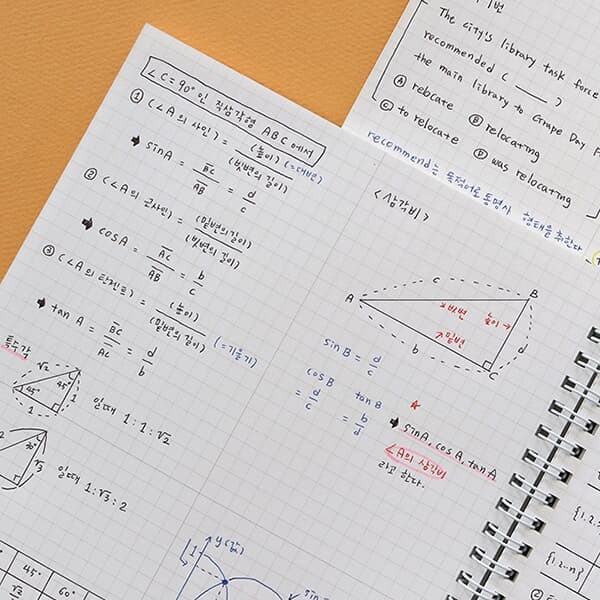 ∠C=90°인 직삼각형 ABC에서
① (∠A의 사인) = (높이)(=대변) / (빗변의 길이)
➡ sinA = BC / AB = d / c
② (∠A의 코사인) = (밑변의 길이) / (빗변의 길이)
➡ cosA = AC / AB = b / c
③ (∠A의 탄젠트) = (높이) / (밑변의 길이) (=기울기)
➡ tan A = BC / AC = d / b
특수각
√2 45° 45° 1 1
일때 1:1:√2
30° √3
일때 1:√3:2
45° 60°
<삼각비>
A B C
c b d
빗변
밑변
높이
sin B = d/c
cos B = d/c
tan B = b/d
➡ sinA, cosA, tanA
∠A의 삼각비
라고 한다.
1 y(값)
sin
The city's library task force
recommended ( ____ )
the main library to Grape Day P
Ⓐ rebcate Ⓑ relocating
Ⓒ to relocate Ⓓ was relocating
recommend는 목적어로 동명사 형태을 취한다
{1.2.
{1.2...n}
②